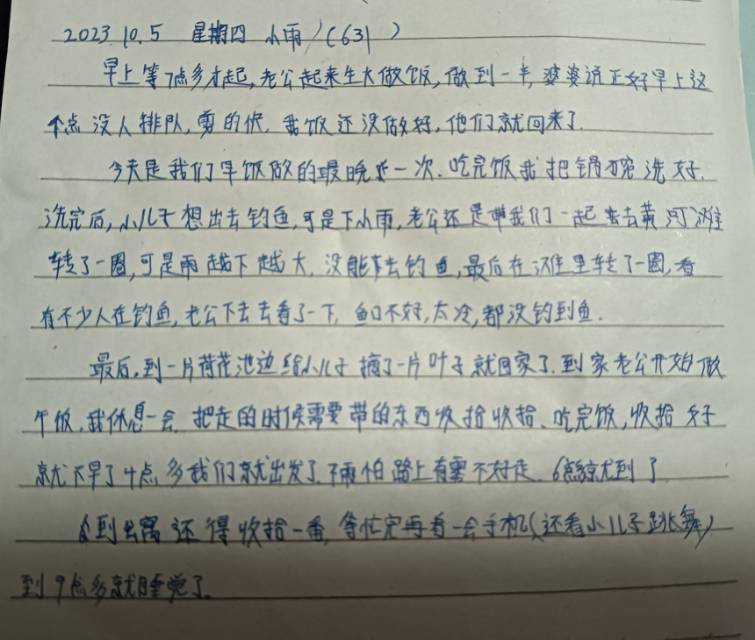 2023.10.5 星期四 小雨 /(631 )
早上等7点多才起,老公起来生火做饭,做到一半,婆婆说正好早上这
个点没人排队,剪的快,我饭还没做好,他们就回来了.
今天是我们早饭做的最晚一次.吃完饭我把锅碗洗好.
洗完后,小儿子想出去钓鱼,可是下小雨,老公还是带我们一起去黄河滩
转了一圈,可是雨越下越大,没能去钓鱼,最后在滩里转了一圈,看
有不少人在钓鱼,老公下去去看了一下,鱼口不好,太冷,都没钓到鱼.
最后,到一片荷花池边给小儿子摘了一片叶子就回家了.到家老公开始做
午饭.我休息一会,把走的时候需要带的东西收拾收拾、吃完饭,收拾好
就不早了4点多我们就出发了.下雨怕路上有雾不好走.6点就到了
到出窝还得收拾一番,等忙完再看一会手机(还看小儿子跳舞)
到9点多就睡觉了.